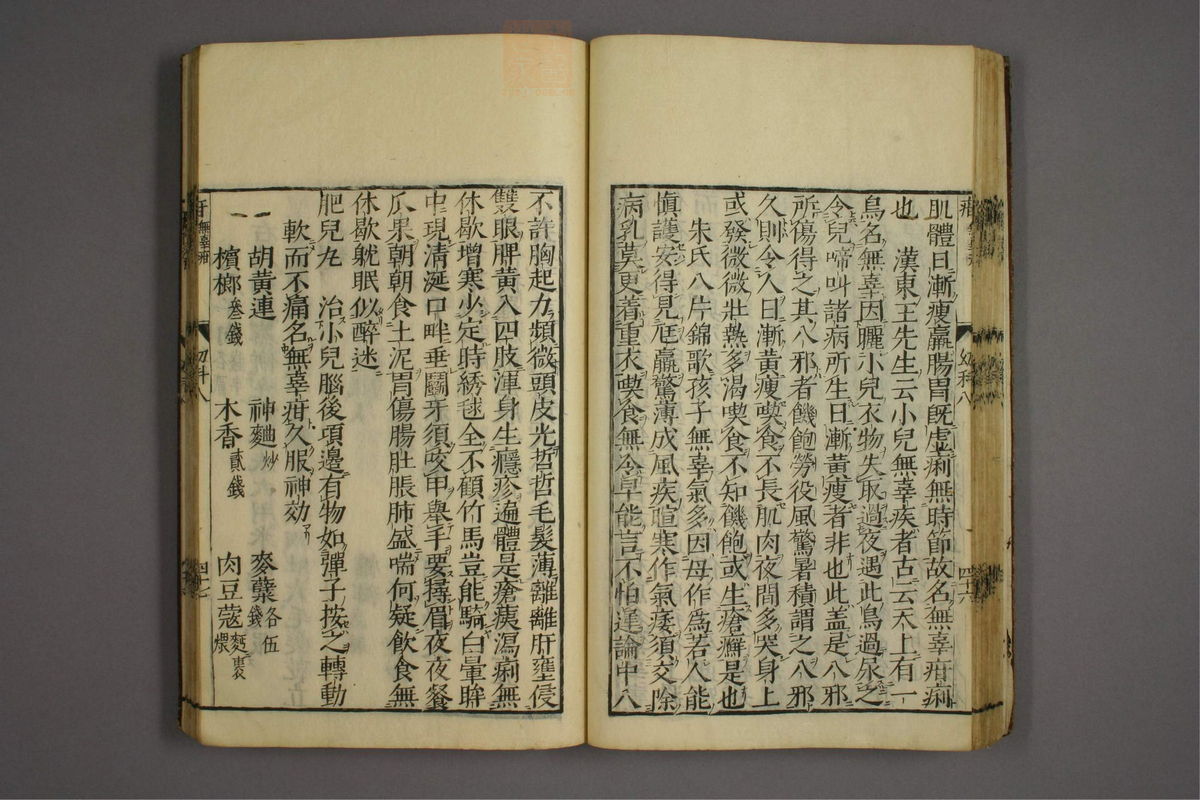 肌體日漸瘦羸腸胃既虛痢無時節故名無辜疳痢
也　漢東王先生云小兒無辜疾者古云天上有一
鳥名無辜因曬小兒衣物失取過夜遇此鳥過尿之
令兒啼叫諸病所生日漸黃瘦者非也此盖是八邪
所傷得之其八邪者饑飽勞役風驚暑積謂之八邪
久則令人日漸黃瘦喫食不長肌肉夜間多哭身上
或發微微壯熱多渴喫食不知饑飽或生瘡癬是也
朱氏八片錦歌孩子無辜氣多因母作為若人能
愼護安得見尫羸驚薄成風疾暄寒作氣痿須交除
病乳莫更着重衣喫食無令早能言不怕遲論中八
幼科八
四十六
不許胸起力類微頭皮光哲哲毛髮薄離離肝壅侵
雙眼脾黃入四肢渾身生癮疹遍體是瘡痍瀉痢無
休歇增寒少定時綉毬全不顧竹馬豈能騎白暈眸
中現清涎口畔垂鬭牙須咬甲舉手要撏眉夜夜餐
爪果朝朝食土泥胃傷腸肚脹肺盛喘何疑飲食無
休歇躭眠似醉迷
肥兒丸　治小兒腦後項邊有物如彈子按之轉動
軟而不痛名無辜疳久服神効
一　胡黃連　神麯炒　麥櫱各伍錢
一　檳榔叁錢　木香貳錢　肉豆蔻麪裹煨
無辜疳
幼科八
四十七